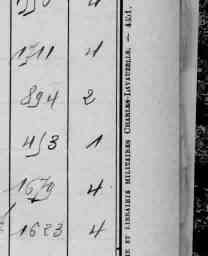 1711 4
894 2
453 1
1679 4
1623 4
ME ET LIBRAIRIE MILITAIRES CHARLES-LAVAUZELLE. — 4351.